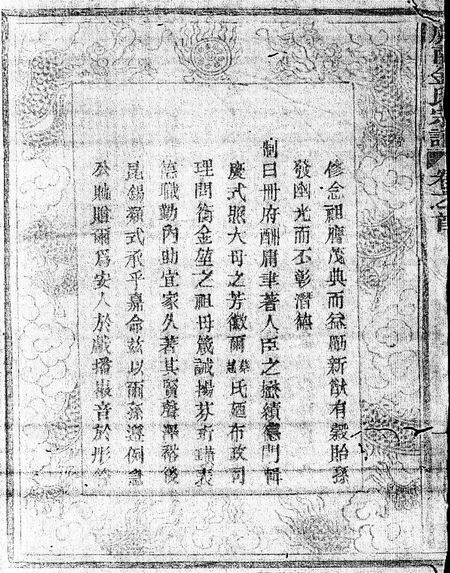 金氏宗譜 卷之首
修念祖膺茂典而益勵新猷有穀貽孫
發幽光而丕彰潛德
制曰冊府酬庸聿著人臣之懋績德門輯
慶式昭大母之芳徽爾蔡趙氏廼布政司
理問銜金堃之祖母箴誡揚芬珩璜表
德職勤內助宜家久著其賢聲澤裕後
昆錫類式承乎嘉命茲以爾孫遵例急
公貤贈爾爲安人於戲播徽音於彤管